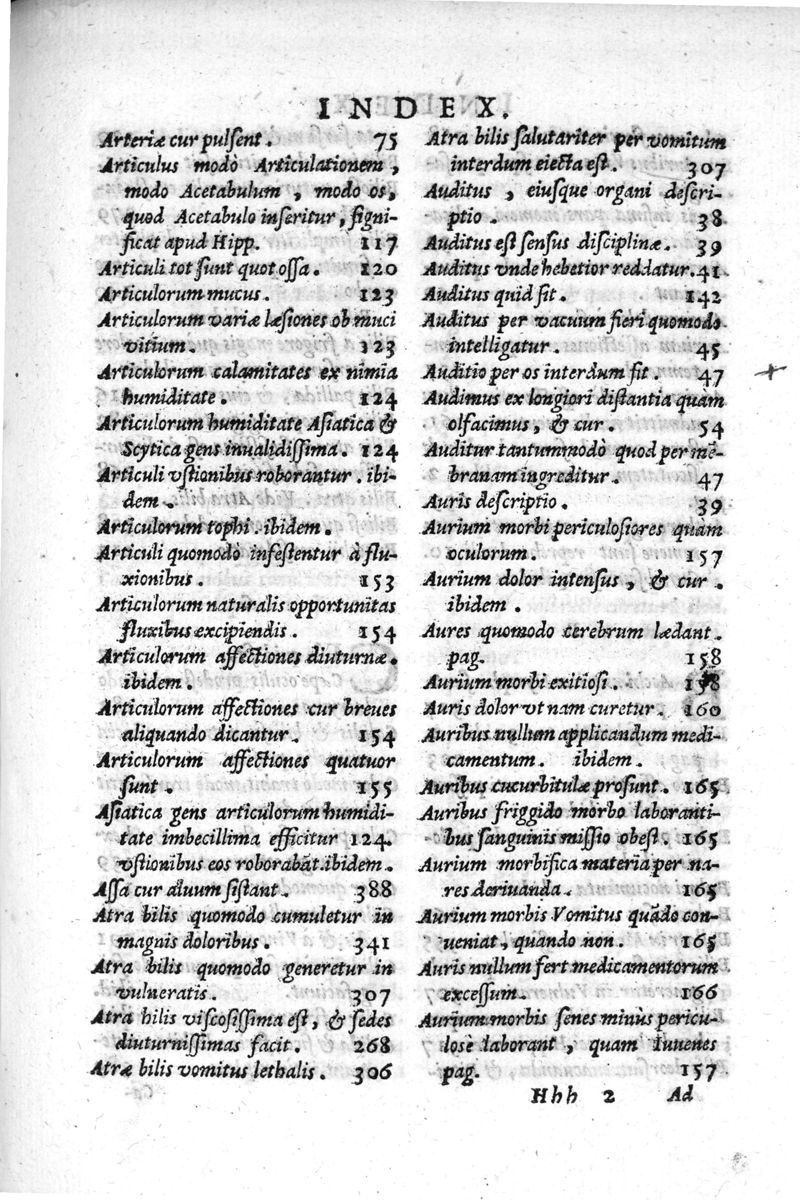 INDEX.
Arteriæ cur pulſent. 75
Articulus modò Articulationem,
modo Acetabulum, modo os,
quod Acetabulo inſeritur, ſigni-
ficat apud Hipp. 117
Articuli tot ſunt quot oſſa. 120
Articulorum mucus. 123
Articulorum variæ læſiones ob muci
vitium. 123
Articulorum calamitates ex nimia
humiditate. 124
Articulorum humiditate Aſiatica &
Scytica gens inualidiſſima. 124
Articuli vſtionibus roborantur. ibi-
dem.
Articulorum tophi. ibidem.
Articuli quomodo infeſtentur à flu-
xionibus. 153
Articulorum naturalis opportunitas
fluxibus excipiendis. 154
Articulorum affectiones diuturnæ.
ibidem.
Articulorum affectiones cur breues
aliquando dicantur. 154
Articulorum affectiones quatuor
ſunt. 155
Aſiatica gens articulorum humidi-
tate imbecillima efficitur 124.
vſtionibus eos roborabāt. ibidem.
Aſſa cur aluum ſiſtant. 388
Atra bilis quomodo cumuletur in
magnis doloribus. 341
Atra bilis quomodo generetur in
vulneratis. 307
Atra bilis viſcoſiſſima eſt, & ſedes
diuturniſſimas facit. 268
Atræ bilis vomitus lethalis. 306
Atra bilis ſalutariter per vomitum
interdum eiecta eſt. 307
Auditus, eiuſque organi deſcri-
ptio. 38
Auditus eſt ſenſus diſciplinæ. 39
Auditus vnde hebetior reddatur. 41
Auditus quid ſit. 142
Auditus per vacuum fieri quomodo
intelligatur. 45
Auditio per os interdum fit. 47
Audimus ex longiori diſtantia quàm
olfacimus, & cur. 54
Auditur tantummodò quod per mē-
branam ingreditur. 47
Auris deſcriptio. 39
Aurium morbi periculoſiores quàm
oculorum. 157
Aurium dolor intenſus, & cur.
ibidem.
Aures quomodo cerebrum lædant.
pag. 158
Aurium morbi exitioſi. 158
Auris dolor vt nam curetur. 160
Auribus nullum applicandum medi-
camentum. ibidem.
Auribus cucurbitulæ proſunt. 165
Auribus friggido morbo laboranti-
bus ſanguinis miſſio obeſt. 165
Aurium morbifica materia per na-
res deriuanda. 165
Aurium morbis Vomitus quādo con-
ueniat, quando non. 165
Auris nullum fert medicamentorum
exceſſum. 166
Aurium morbis ſenes minùs pericu-
loſè laborant, quam Iuuenes
pag. 157
Hhh 2 Ad